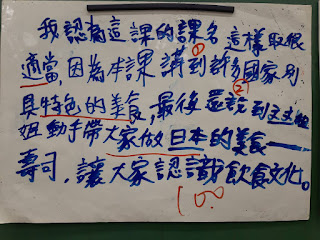 我認為這課的課名這樣取很
①
適當,因為本課講到許多國家別
②
具特色的美食,最後還說到文文姐
姐動手帶大家做日本的美食——
壽司,讓大家認識飲食文化。
100